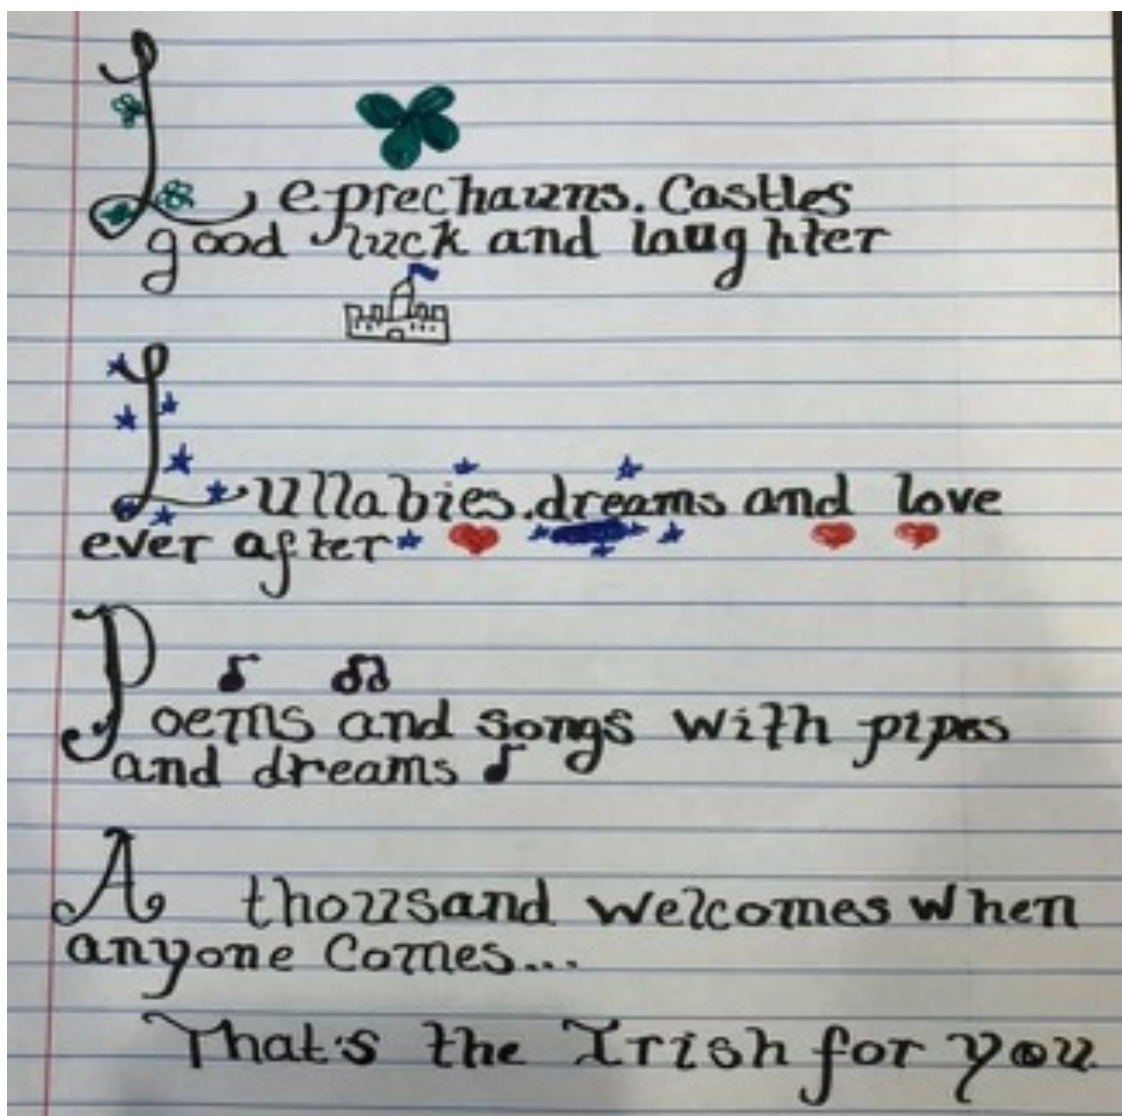 Leprechauns. Castles
good luck and laughter
Lullabies. dreams and love
ever after
Poems and songs with pipes
and dreams
A thousand welcomes when
anyone Comes...
That's the Irish for you